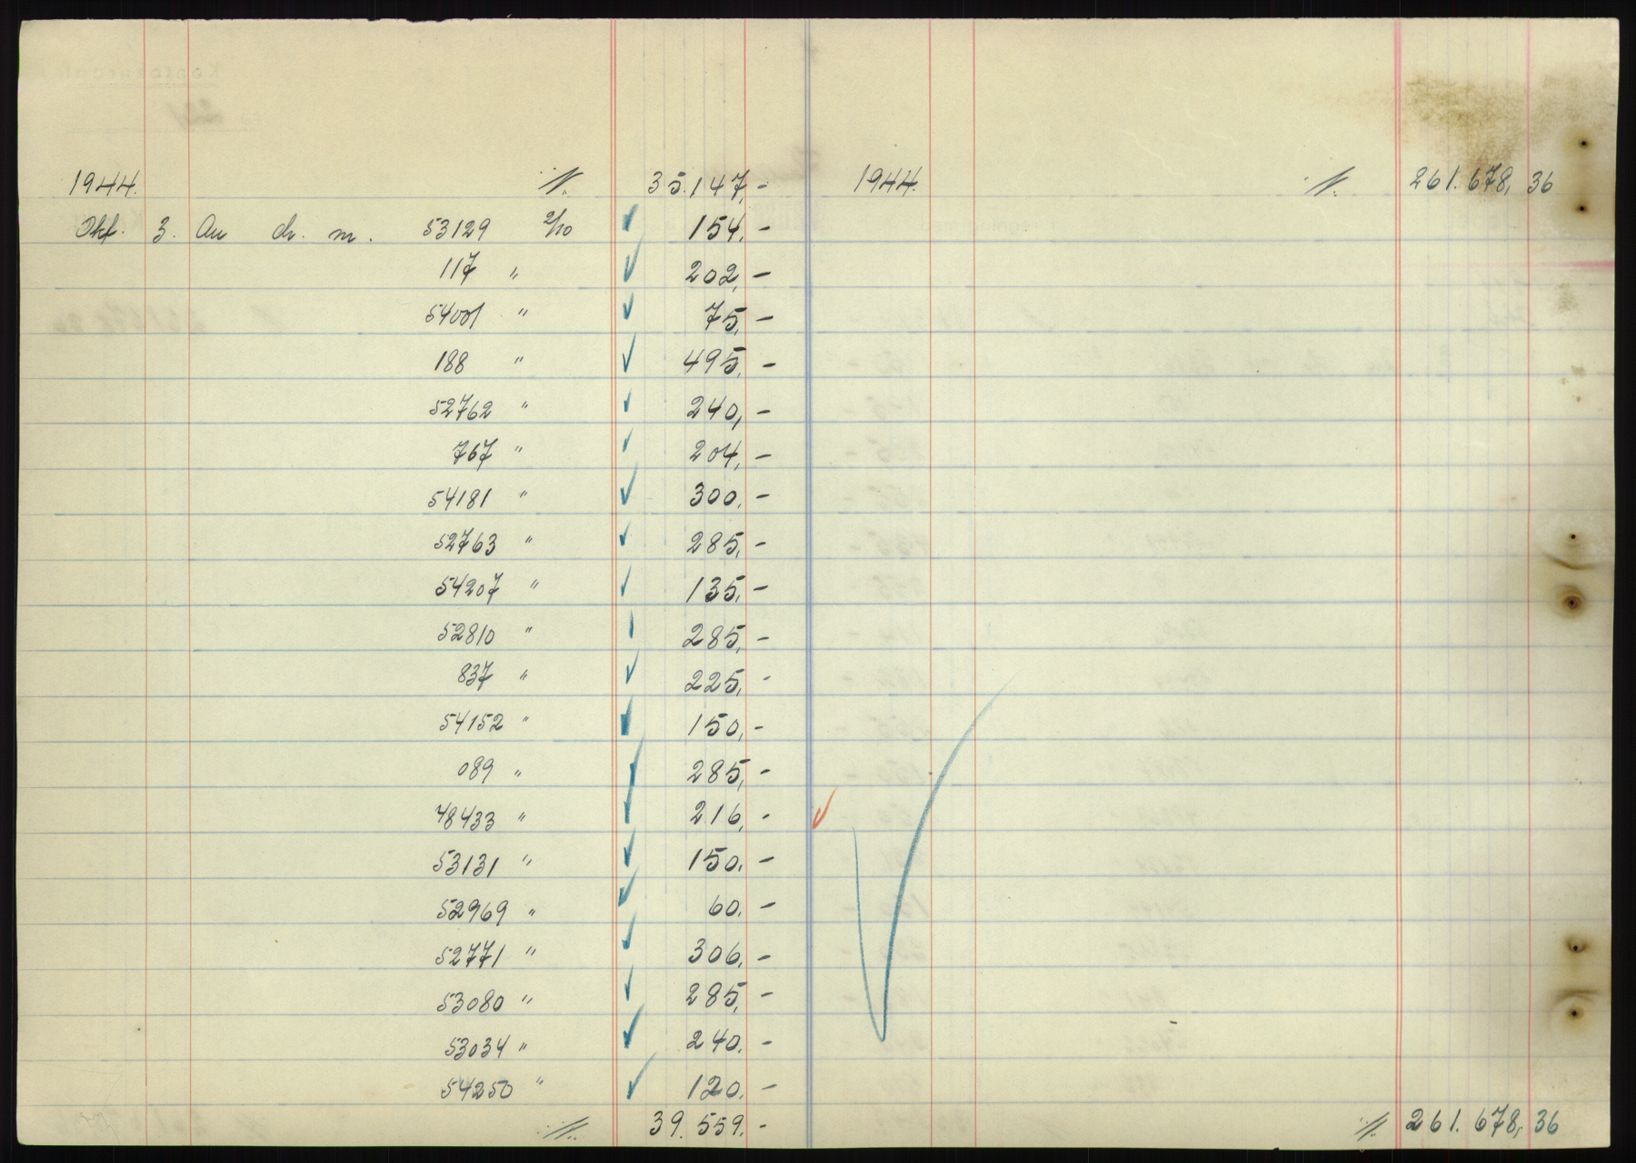 1944. 35.147,- 1944. 261.678,36
Okt. 3. An ch. m. 53129 2/10 154,-
117 " 202,-
54001 " 75,-
188 " 495,-
52762 " 240,-
767 " 204,-
54181 " 300,-
52763 " 285,-
54207 " 135,-
52810 " 285,-
837 " 225,-
54152 " 150,-
089 " 285,-
48433 " 216,-
53131 " 150,-
52969 " 60,-
52771 " 306,-
53080 " 285,-
53034 " 240,-
54250 " 120,-
39.559,- 261.678,36